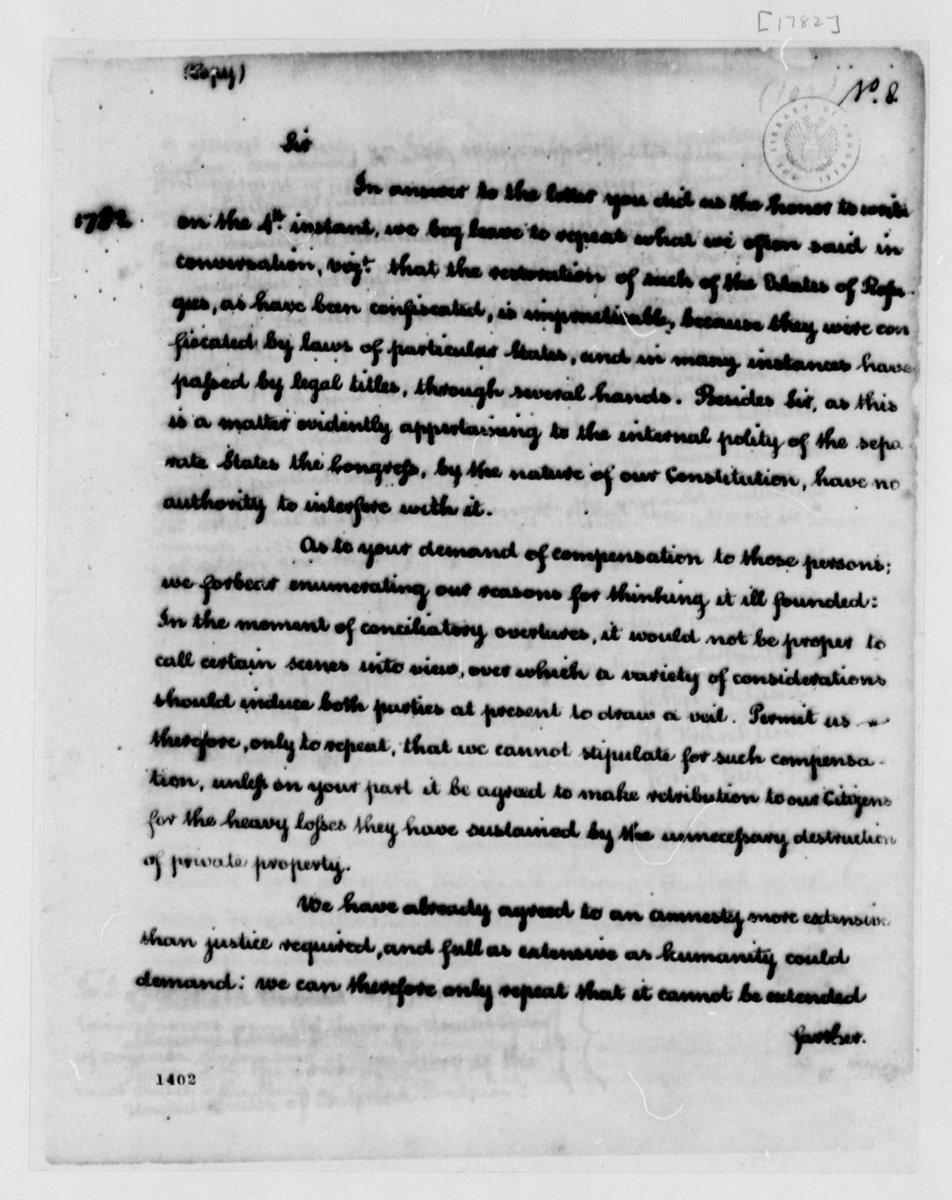 [1782]
(Copy)
No. 8.
THE LIBRARY OF CONGRESS
Sir
In answer to the letter you did us the honor to write
1782
on the 4th. instant, we beg leave to repeat what we often said in
conversation, vizt. that the restoration of such of the Estates of Refu-
gees, as have been confiscated, is impracticable, because they were con
fiscated by laws of particular States, and in many instances have
passed by legal titles, through several hands. Besides Sir, as this
is a matter evidently appertaining to the internal polity of the sepa
rate States the Congress, by the nature of our Constitution, have no
authority to interfere with it.
As to your demand of compensation to those persons;
we forbear enumerating our reasons for thinking it ill founded:
In the moment of conciliatory overtures, it would not be proper to
call certain scenes into view, over which a variety of considerations
should induce both parties at present to draw a veil. Permit us
therefore, only to repeat, that we cannot stipulate for such compensa-
tion, unless on your part it be agreed to make retribution to our Citizens
for the heavy losses they have sustained by the unnecessary destruction
of private property.
We have already agreed to an amnesty more extensive
than justice required, and full as extensive as humanity could
demand: we can therefore only repeat that it cannot be extended
farther.
1402